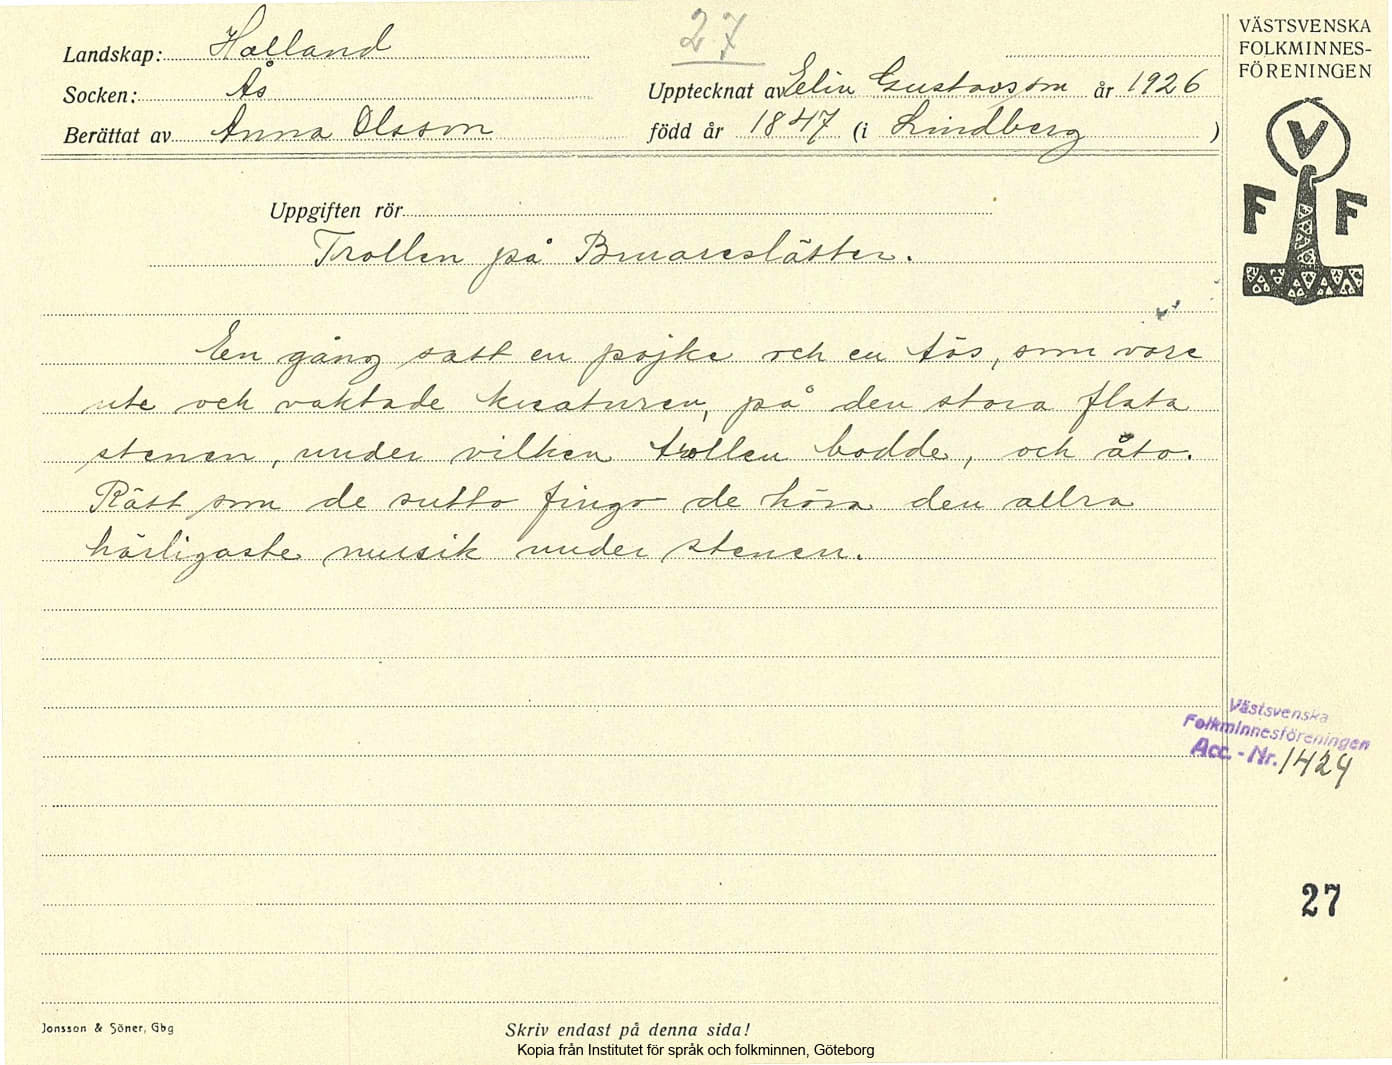 27
Landskap: Halland
Socken: Ås
Berättat av Anna Olsson
Upptecknat av Elin Gustavsson år 1926
född år 1847 (i Lindberg )
VÄSTSVENSKA
FOLKMINNES-
FÖRENINGEN
V
F F
Uppgiften rör
Trollen på Bruareslätten.
En gång satt en pojke och en tös, som vore
ute och vaktade kreaturen, på den stora flata
stenen, under vilken trollen bodde, och åto.
Rätt som de sutto fingo de höra den allra
härligaste musik under stenen.
Västsvenska
Folkminnesföreningen
Acc. - Nr. 1424
27
Jonsson & Söner, Gbg
Skriv endast på denna sida!
Kopia från Institutet för språk och folkminnen, Göteborg